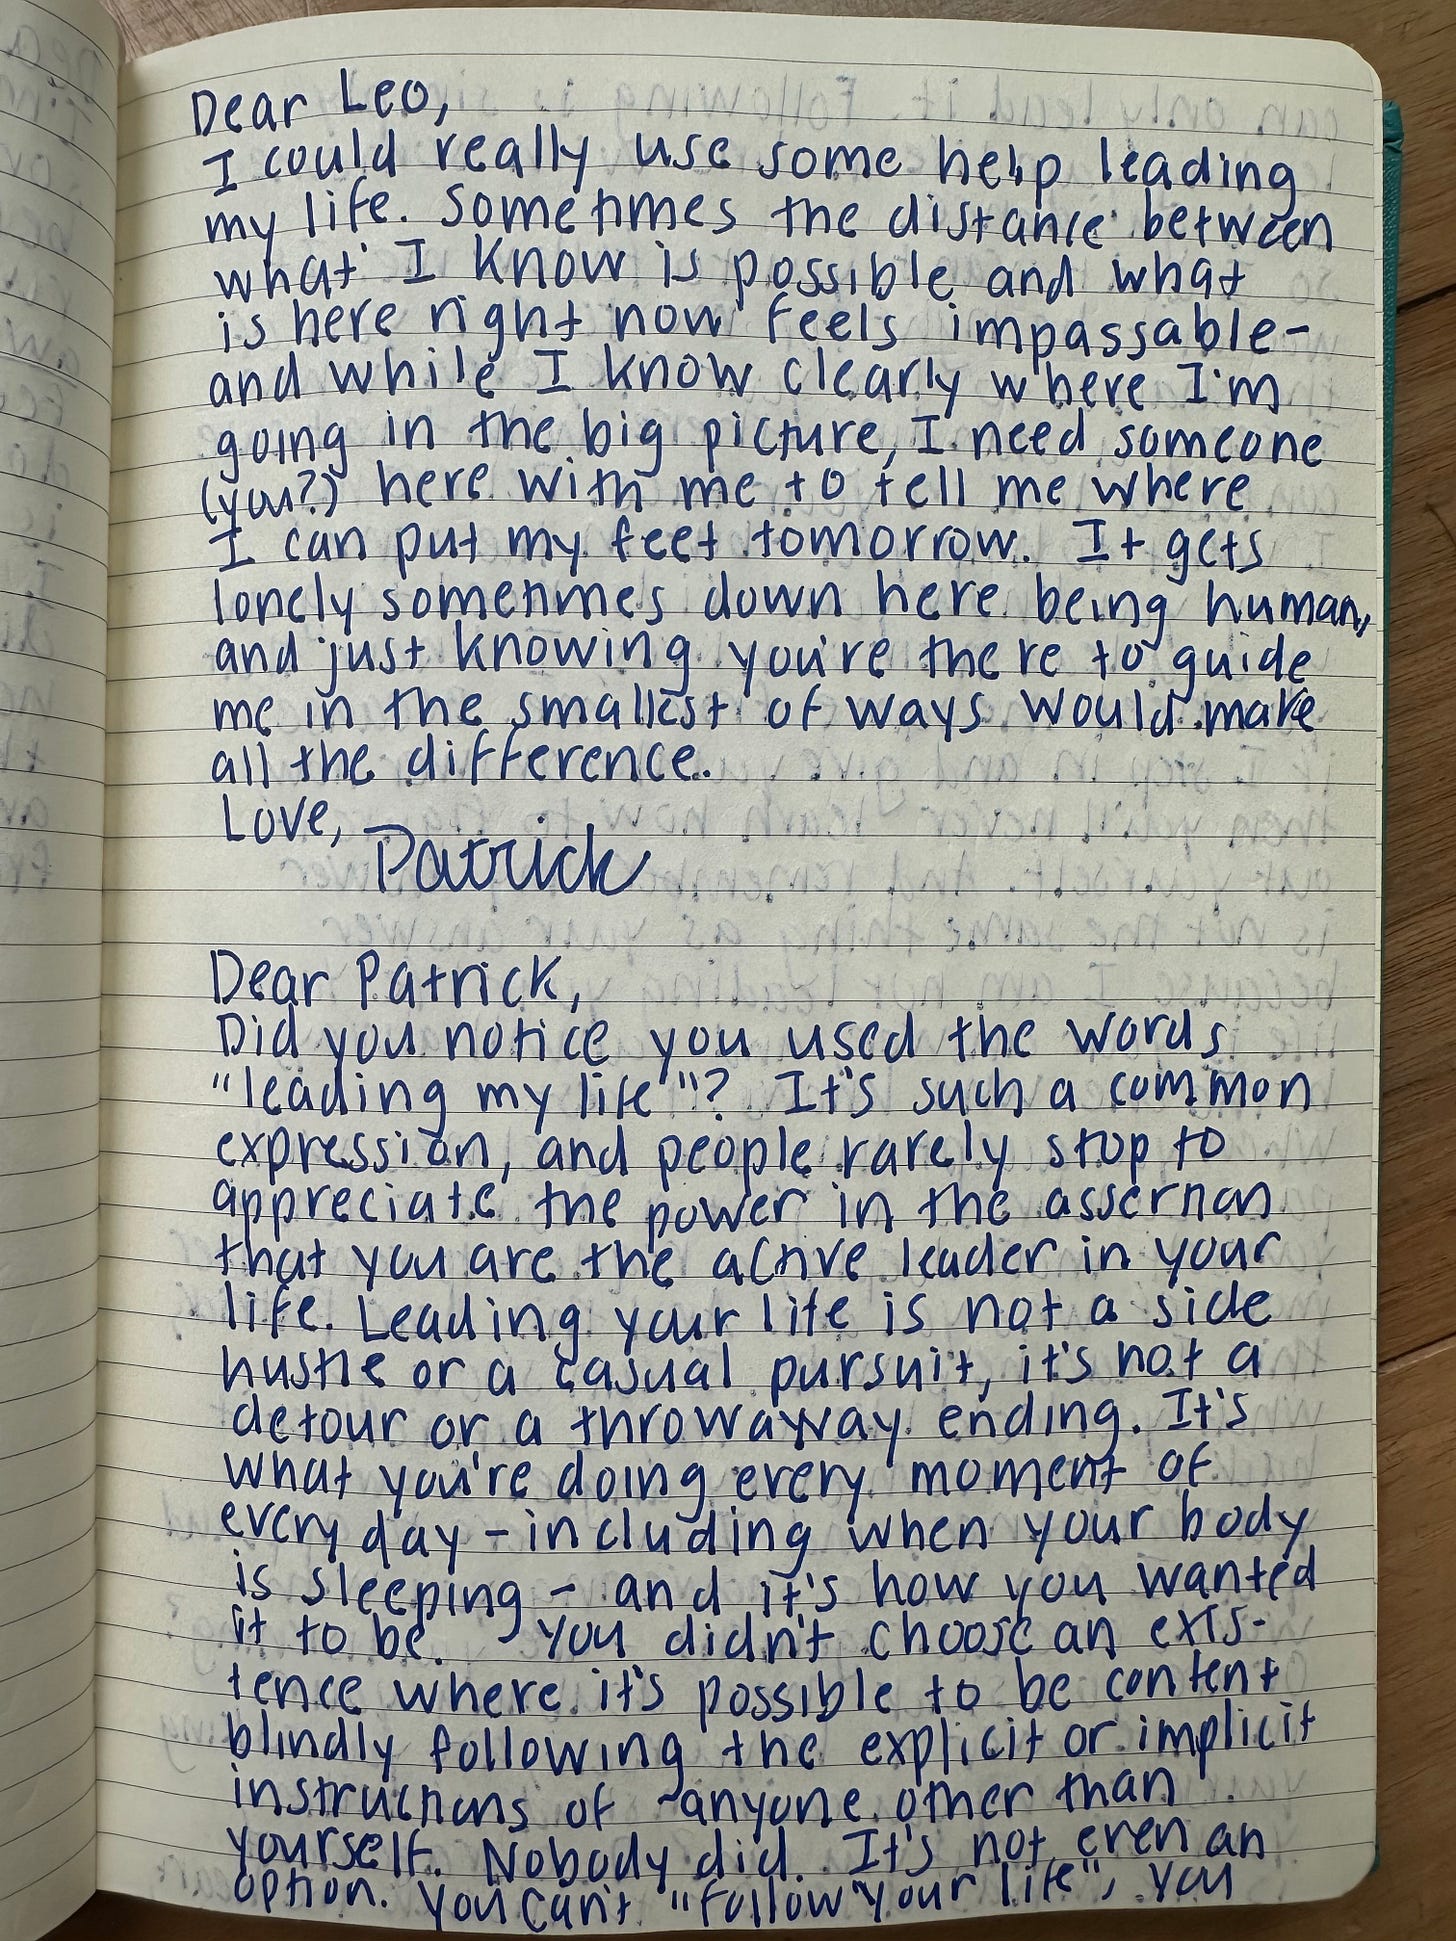 Dear Leo,
I could really use some help leading
my life. Sometimes the distance between
what I know is possible and what
is here right now feels impassable-
and while I know clearly where I'm
going in the big picture, I need someone
(you?) here with me to tell me where
I can put my feet tomorrow. It gets
lonely sometimes down here being human,
and just knowing you're there to guide
me in the smallest of ways would make
all the difference.
Love,
Patrick
Dear Patrick,
Did you notice you used the words
"leading my life"? It's such a common
expression, and people rarely stop to
appreciate the power in the assertion
that you are the active leader in your
life. Leading your life is not a side
hustle or a casual pursuit, it's not a
detour or a throwaway ending. It's
what you're doing every moment of
every day - including when your body
is sleeping - and it's how you wanted
it to be. You didn't choose an exis-
tence where it's possible to be content
blindly following the explicit or implicit
instructions of anyone other than
yourself. Nobody did. It's not even an
option. You can't "follow your life", you